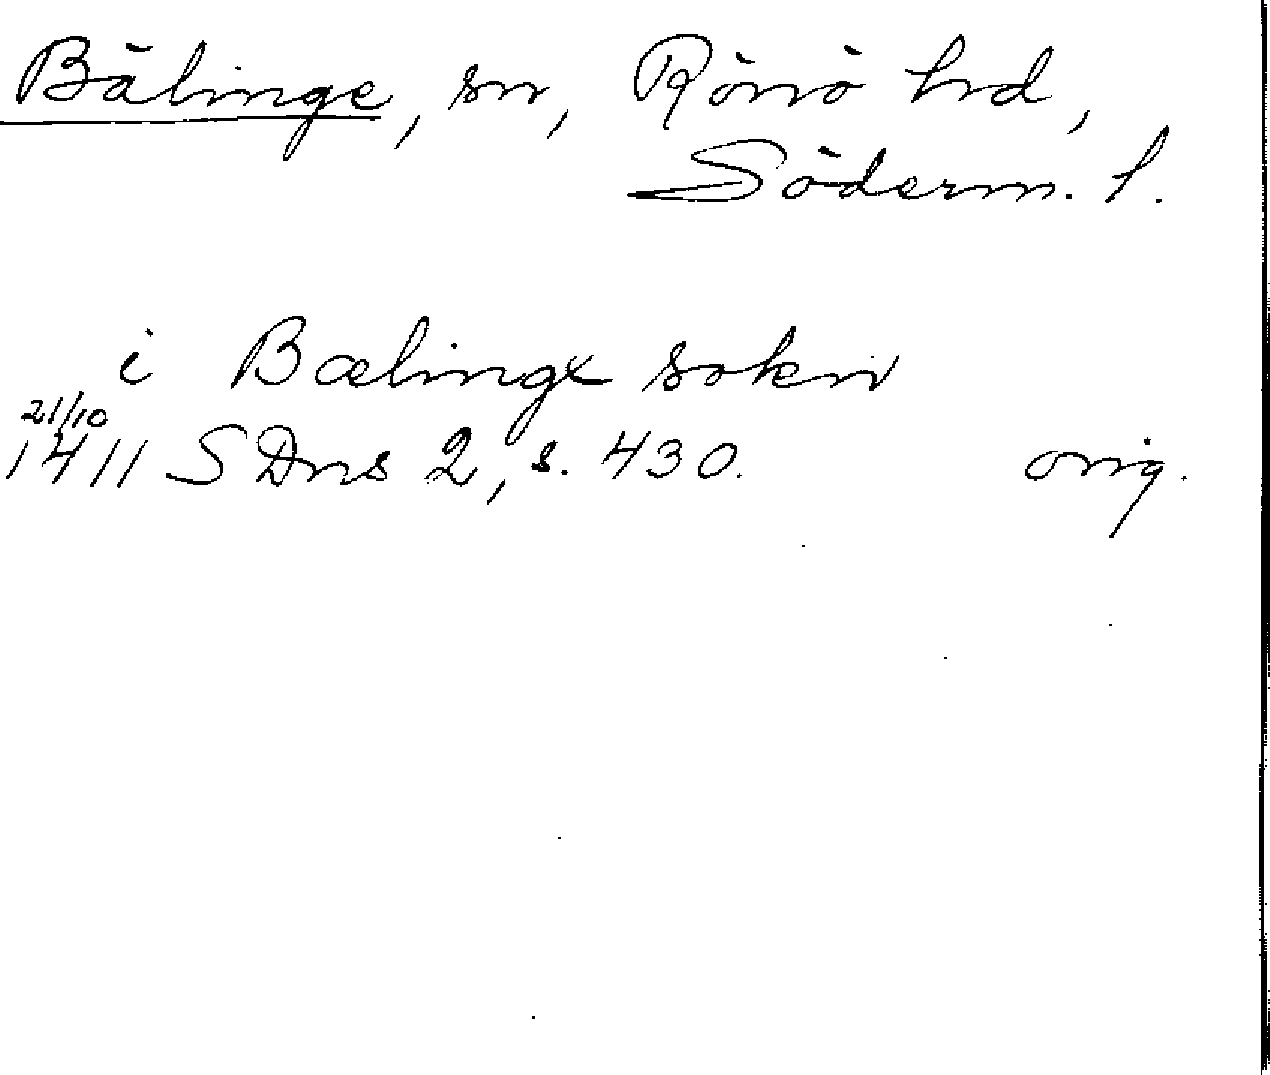 Bälinge, sn, Rönö hd,
Söderm. l.
i Bælinge sokn
21/10
1411 SDns 2, s. 430. orig.